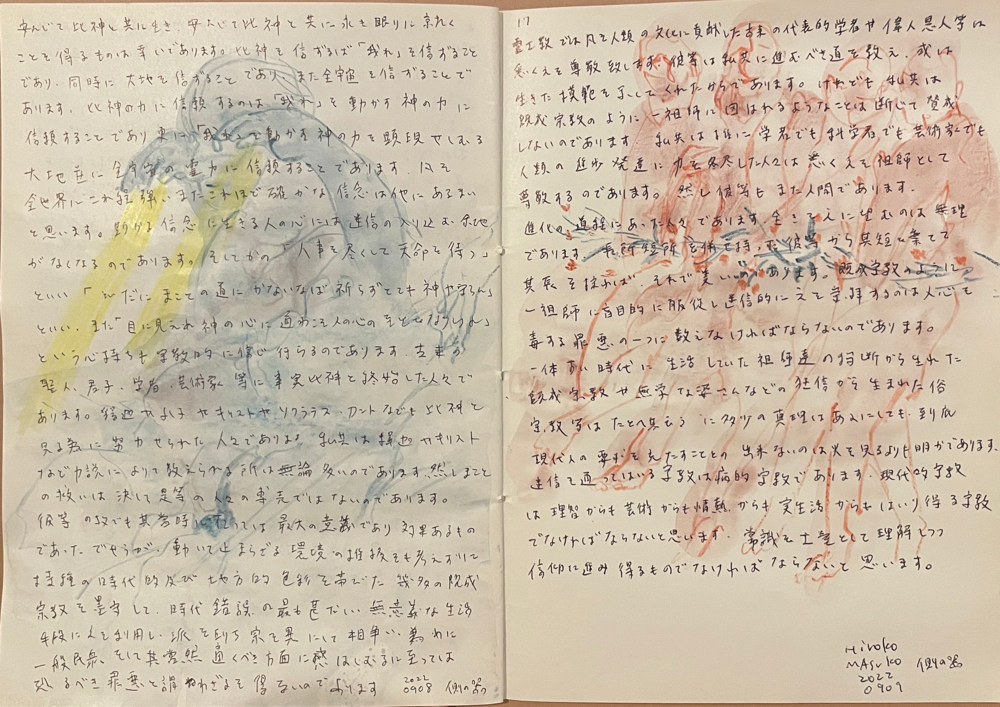 安んじて此神と共に生き、安んじて此神と共に永き眠りに就く
ことを得るものは幸いであります。此神を信ずるは「我れ」を信ずること
であり、同時に大地を信ずることであり、また全宇宙を信ずることで
あります。此神の力に信頼するのは「我れ」を動かす神の力に
信頼することであり更に「我れ」を動かす神の力を顕現せしむる
大地並に全宇宙の霊力に信頼することであります 凡そ
全世界にこれ程強いまたこれほど確かな信念は他にあるまい
と思います。斯かる信念に生きる人の心には迷信の入り込む余地
がなくなるのであります。そしてかの「人事を尽くして天命を待つ」
といい「心だにまことの道にかないなば祈らずとても神や守らん」
といい、また「目に見えぬ神の心に通わこそ人の心のまことなりけれ」
という心持ちを宗教的に信じ得らるのであります。古来の
聖人、君子、学者、芸術家等は事実此神と終始した人々で
あります。釈迦や孔子やキリストやソクラテス、カントなども此神と
見る為に努力せられた人々であります 私共は釈迦やキリスト
などの説によりて教えられる所は無論多いのであります然しまこと
の救いは決して是等の人々の専売ではないのであります。
彼等の教でも其当時に在っては最大の意義であり効果あるもの
であったでせうが、動いて止まらざる環境の推移をも考えずに
特種の時代的及び地方的色彩を帯びた幾多の既成
宗教を墨守して、時代錯誤の最も甚だしい無意義な生活
手段に人を利用し、派を別ち家を異にして相争い、為めに
一般民衆をして其当然進くべき方面に惑はしむるに至っては
恐るべき罪悪と謂わざるを得ないのであります
2022
0908 似の器
17
霊土教では凡て人類の文化に貢献した古来の代表的学者や偉人恩人等は
悉くえを尊敬致します。彼等は私共に進むべき道を教え、或は
生きた模範を示してくれたからであります。けれども私共は
既成宗教のように一祖師に囚はれるようなことは断じて賛成
しないのであります 私共は単に学者でも科学者でも芸術家でも
人類の進歩発達に力を尽した人々は悉くえを祖師として
尊敬するのであります。然し彼等もまた人間であります。
進化の道程にあった人々であります。全きをえに望むのは無理
であります。長所短所を併せ持つ彼等から其短を棄てて
其長を採れば、それで善いのであります。既成宗教のように
一祖師に盲目的に服従し迷信的にえを崇拝するのは人心を
毒する罪悪の一つに数えなければならないのであります。
一体ある時代に生活していた祖師達の独断から生れた
既成宗教や無学な婆さんなどの狂信から生まれた俗
宗教等はたとへ其うちに多少の真理はあるにしても、到底
現代人の要求をみたすことの出来ないのは火を見るよりも明かであります。
迷信を通ってはいる宗教は病的宗教であります。現代的宗教
は理智からも芸術からも情熱からも実生活からもはいり得る宗教
でなければならないと思います。常識を土台として理解しつつ
信仰に進み得るものでなければならないと思います。
Hiroko
Masuko
2022
0909 似の器